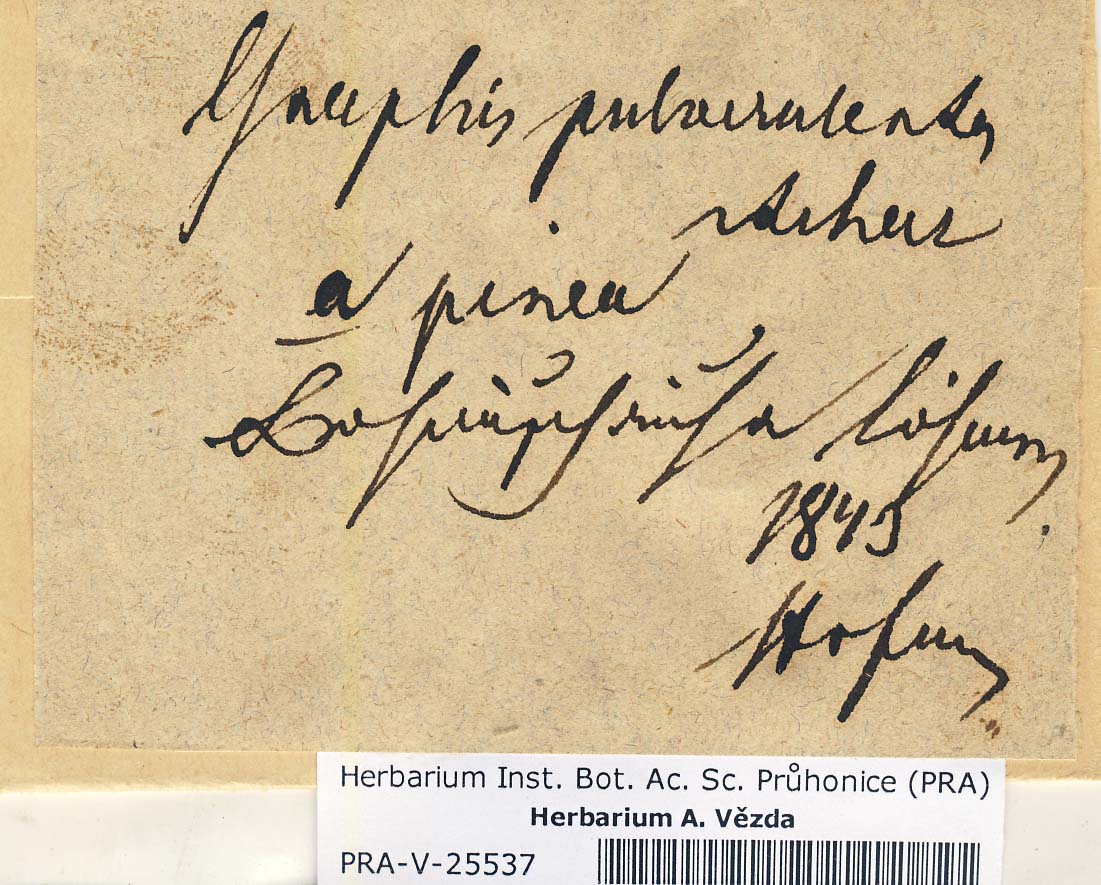 Graphis pulverulenta
Achar
a pinea
Böhmen
1843
Hofman
Herbarium Inst. Bot. Ac. Sc. Průhonice (PRA)
Herbarium A. Vězda
PRA-V-25537